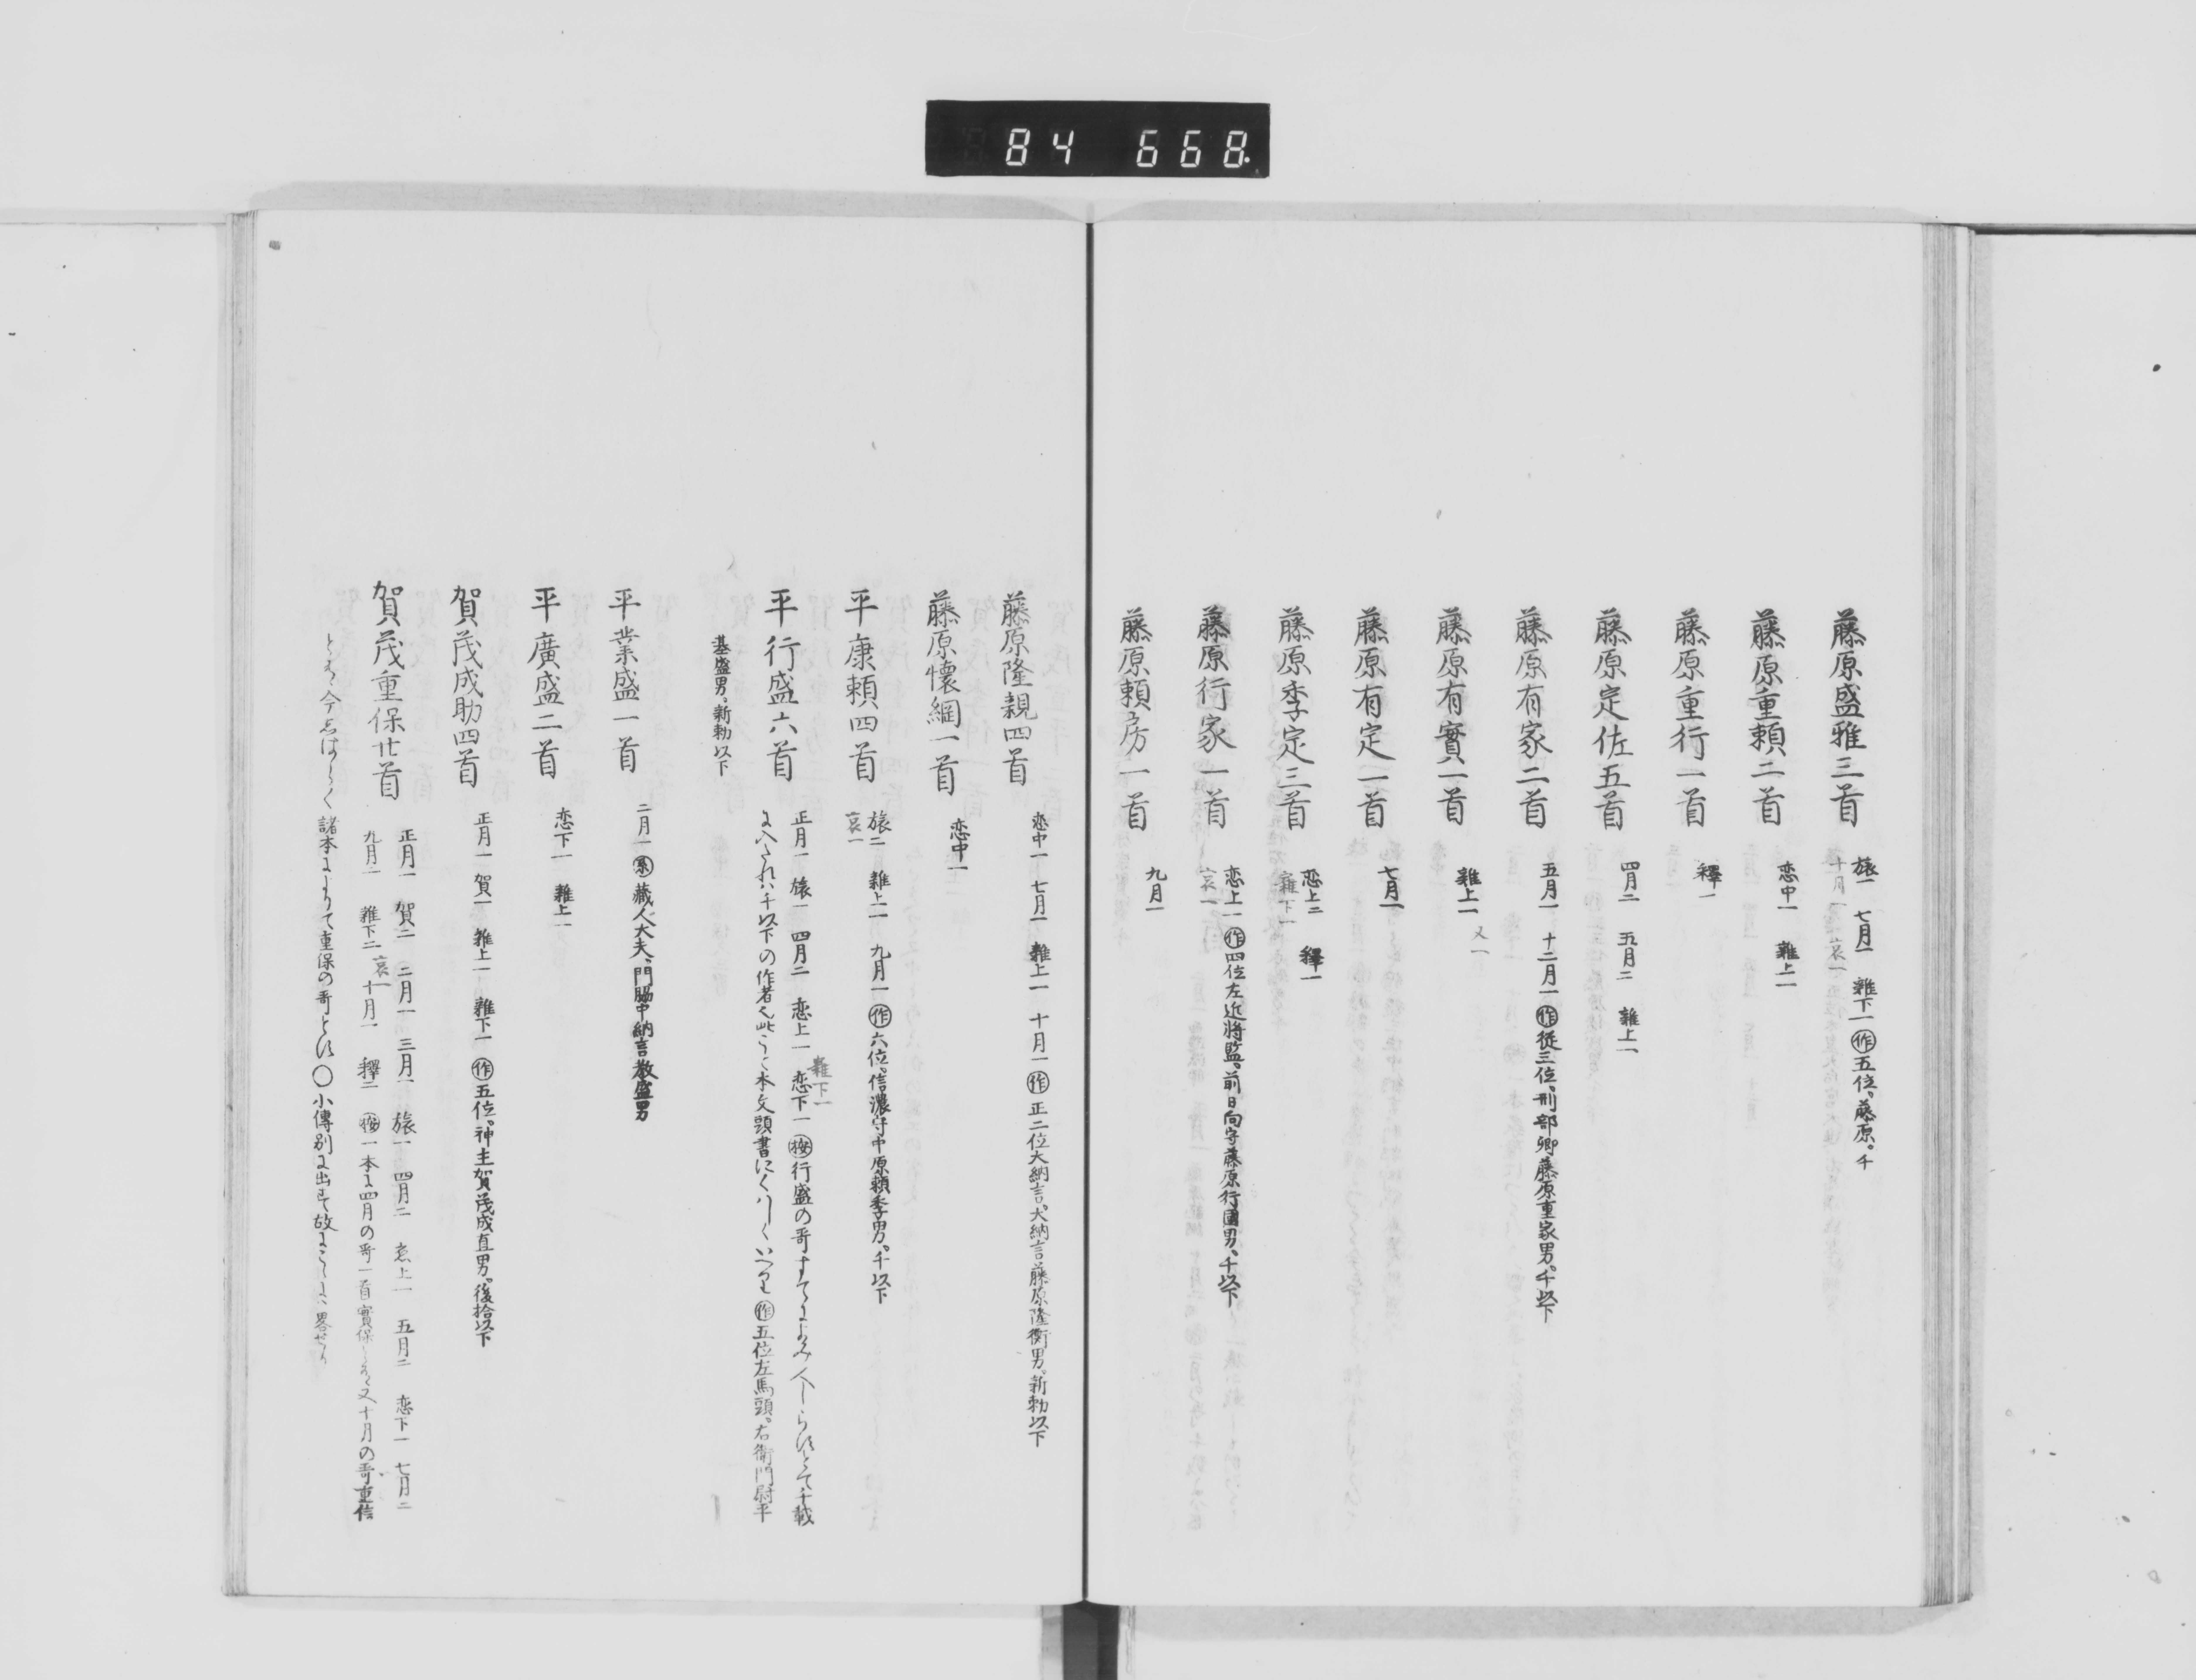 84 668.
藤原盛雅三首
旅一 七月一 雜下一 作 五位。藤原。千
十月一 哀一
藤原重頼二首
恋中一 雜上一
藤原重行一首
釋一
藤原定佐五首
四月二 五月二 雜上一
藤原有家二首
五月一 十二月一 作 從三位。刑部卿藤原重家男。千以下
藤原有實一首
雜上一
又一
藤原有定一首
七月一
藤原季定三首
恋上二 釋一
雜下一
藤原行家一首
恋上一 作 四位左近將監。前日向守藤原行國男。千以下
哀一
藤原頼房一首
九月一
藤原隆親四首
恋中一 七月一 雜上一 十月一 作 正二位大納言。大納言藤原隆衡男。新勅以下
藤原懷綱一首
恋中一
平康頼四首
旅二 雜上一 九月一 作 六位。信濃守中原頼季男。千以下
哀一
平行盛六首
雜下一
正月一 旅一 四月二 恋上一 恋下一 按 行盛の哥すてによみ人しらすとて千載
に入たれハ千以下の作者 本文頭書にくハしくいへり 作 五位左馬頭。右衞門尉平
基盛男。新勅以下
平業盛一首
二月一 系 藏人大夫。門脇中納言教盛男
平廣盛二首
恋下一 雜上一
賀茂成助四首
正月一 賀一 雜上一 雜下一 作 五位。神主賀茂成直男。後拾以下
賀茂重保廿首
正月一 賀二 二月一 三月一 旅一 四月二 恋上一 五月二 恋下一 七月二
九月一 雜下二 哀一 十月一 釋二 按 一本に四月の哥一首實保 又十月の哥重信
今 諸本によりて重保の哥とす ○小傳別に出す故にこゝに畧せり